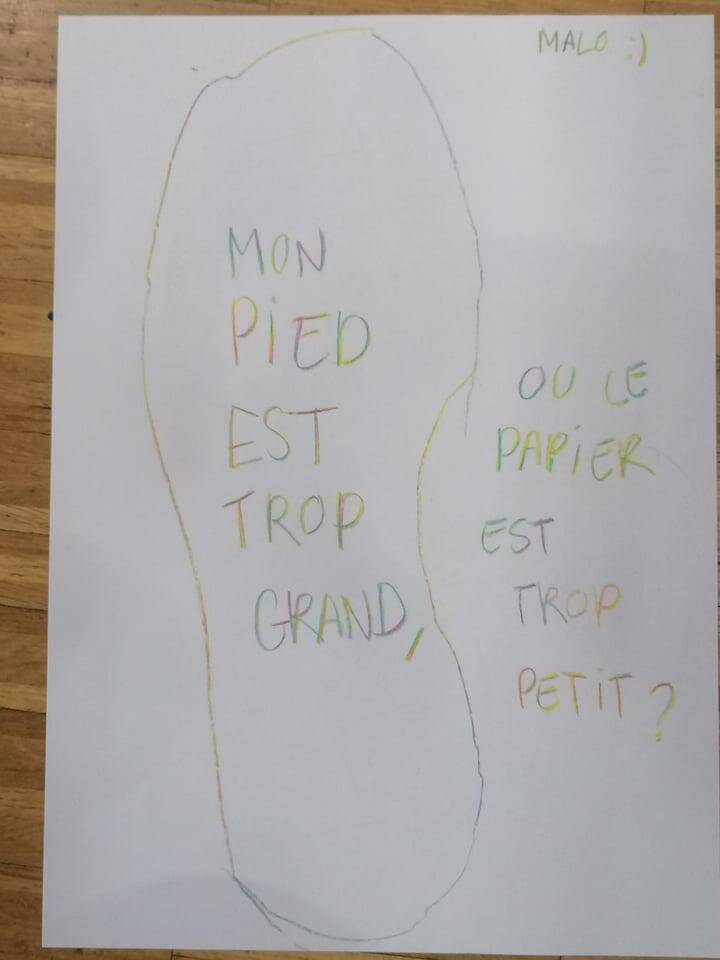 MALO :)
MON
PiED
EST
TROP
GRAND,
OU LE
PAPiER
EST
TROP
PETiT ?